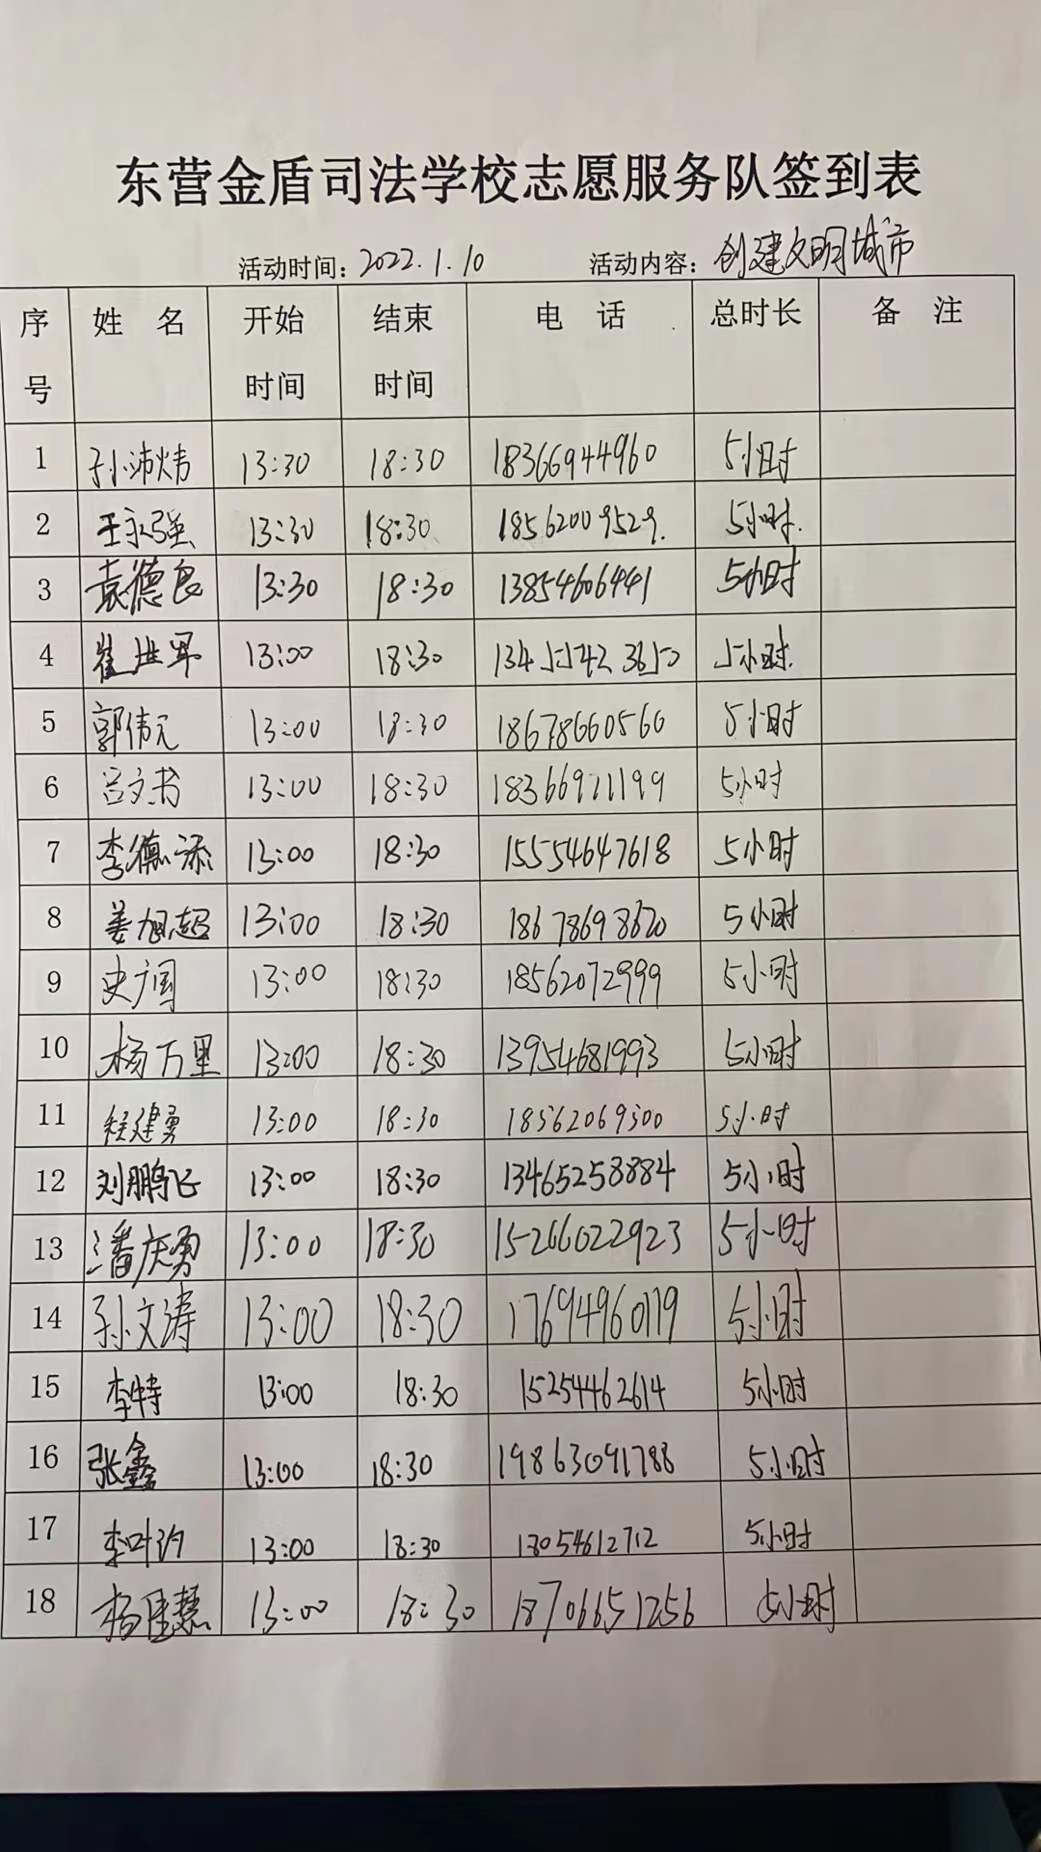 东营金盾司法学校志愿服务队签到表
活动时间：2022.1.10 活动内容：创建文明城市
序号 姓 名 开始时间 结束时间 电 话 总时长 备 注
1 孙沛炜 13:30 18:30 18366944960 5小时
2 王永强 13:30 18:30 18562009529. 5小时.
3 袁德良 13:30 18:30 13854606441 5小时
4 崔世军 13:00 18:30 13455423650 5小时.
5 郭伟元 13:00 18:30 18678660560 5小时
6 吕文书 13:00 18:30 18366921199 5小时
7 李德添 13:00 18:30 15554647618 5小时
8 姜旭超 13:00 18:30 18678698620 5小时
9 史广国 13:00 18:30 18562072999 5小时
10 杨万里 13:00 18:30 13954681993 5小时
11 程建勇 13:00 18:30 18562069300 5小时
12 刘鹏飞 13:00 18:30 13465258884 5小时
13 潘庆勇 13:00 18:30 15266022923 5小时
14 孙文涛 13:00 18:30 17694960179 5小时
15 李特 13:00 18:30 15254462614 5小时
16 张鑫 13:00 18:30 19863091788 5小时
17 李叶 13:00 18:30 18054612712 5小时
18 杨佳慧 13:00 18:30 18706651256 5小时